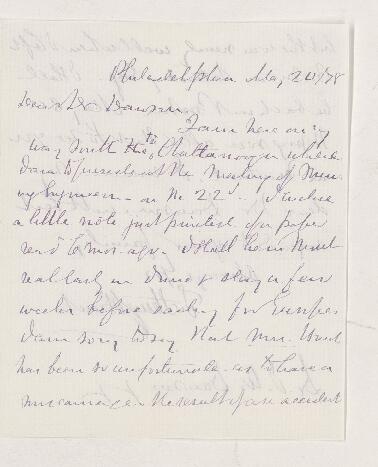 Philadelphia May 20/78
Dear Dr Dawson
I am here on my
way south to Chattanooga where
I am to preside at the Meeting of Min-
ing Engineers on the 22d. I enclose
a little note just printed of a paper
read 2 mos. ago. I shall be in Mont-
real early in June & stay a few
weeks before sailing for Europe
I am sorry to say that Mrs. Hunt
has been so unfortunate as to have a
miscarriage the result of an accident